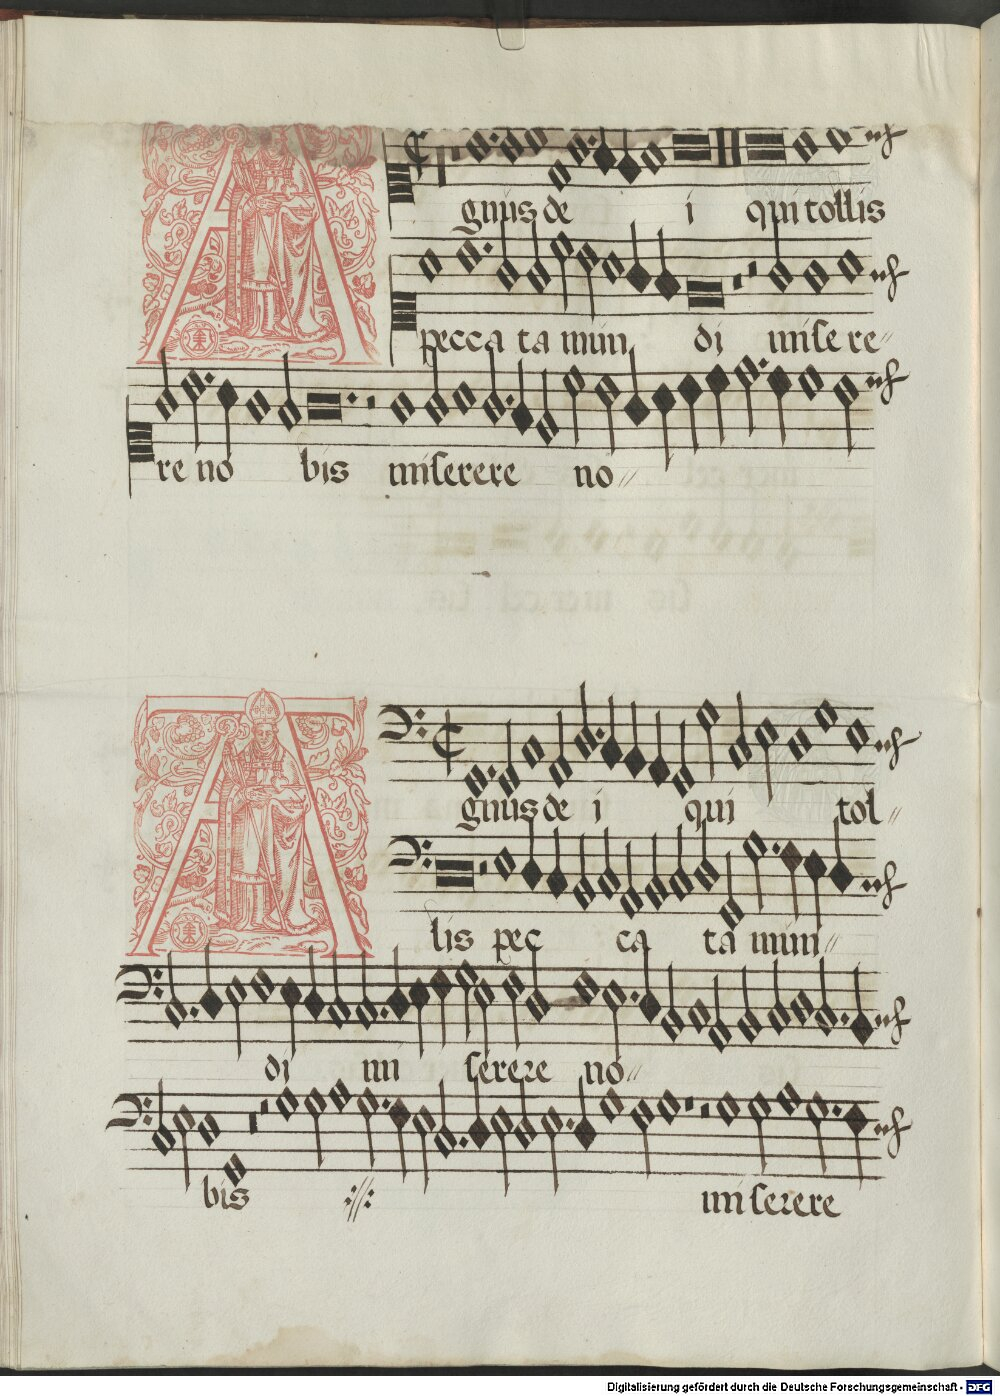 A gnus de i qui tollis
pecca ta mun di mise re
re no bis miserere no
A gnus de i qui tol
lis pec ca ta mun
di mi serere no
bis ://: mi serere
Digitalisierung gefördert durch die Deutsche Forschungsgemeinschaft - DFG